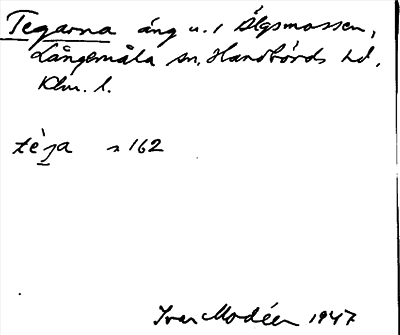 Tegarna äng u. i Älgsmossen,
Långemåla sn, Handbörds hd,
Klm. l.
téga s 162
Ivar Modéer 1947